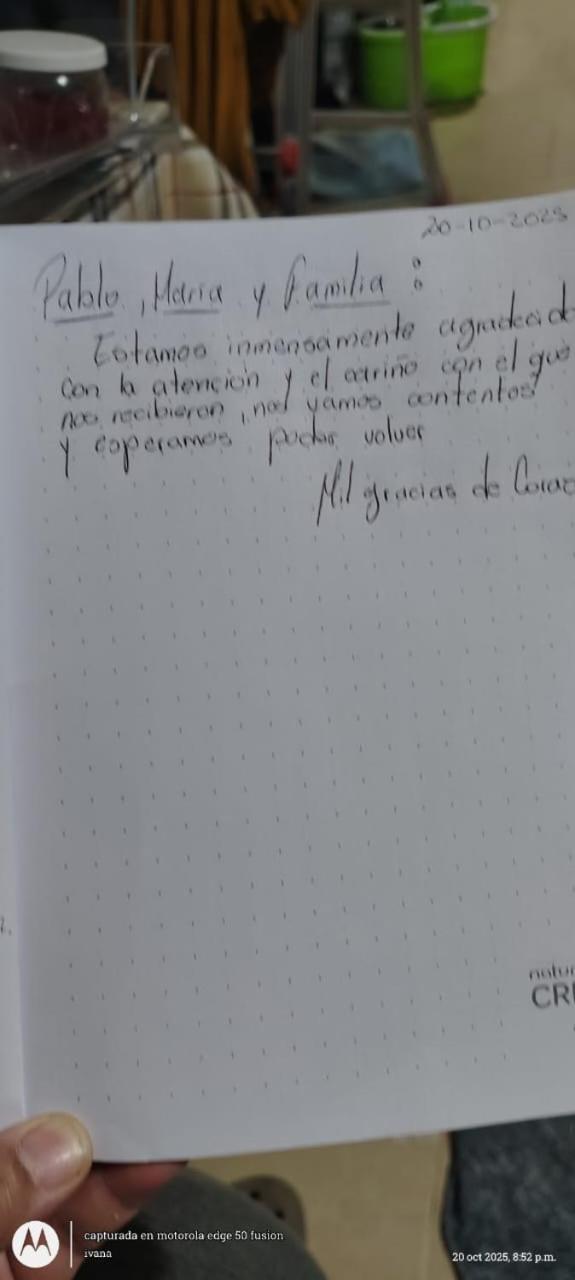 20-10-2025
Pablo, Maria y Familia :
Estamos inmensamente agradecid
con la atencion y el cariño con el que
nos recibieron, nos vamos contentos
y esperamos poder volver
Mil gracias de Coraz
natur
CRE
capturada en motorola edge 50 fusion
ivana
20 oct 2025, 8:52 p.m.